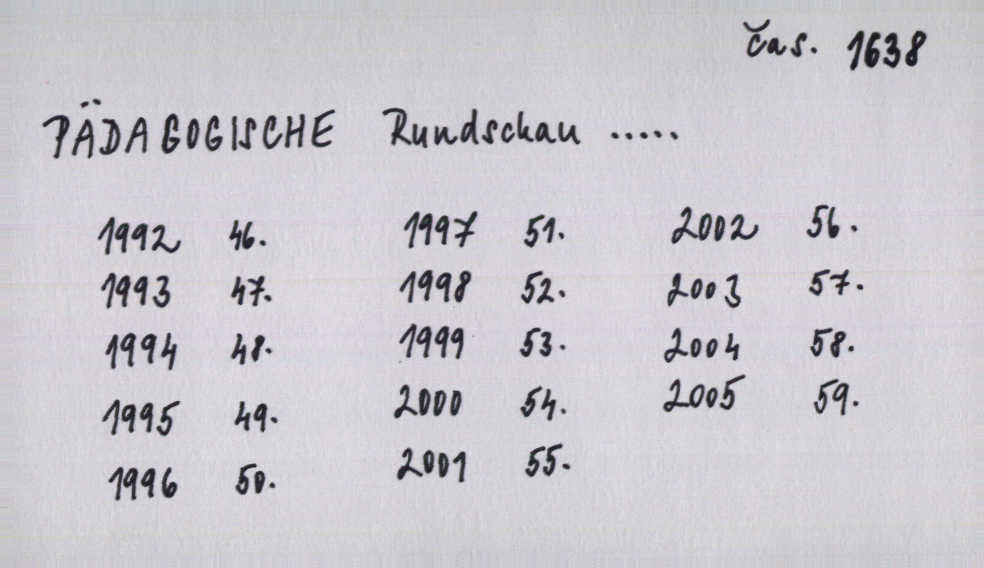 čas. 1638
PÄDAGOGISCHE Rundschau .....
1992 46. 1997 51. 2002 56.
1993 47. 1998 52. 2003 57.
1994 48. 1999 53. 2004 58.
1995 49. 2000 54. 2005 59.
1996 50. 2001 55.